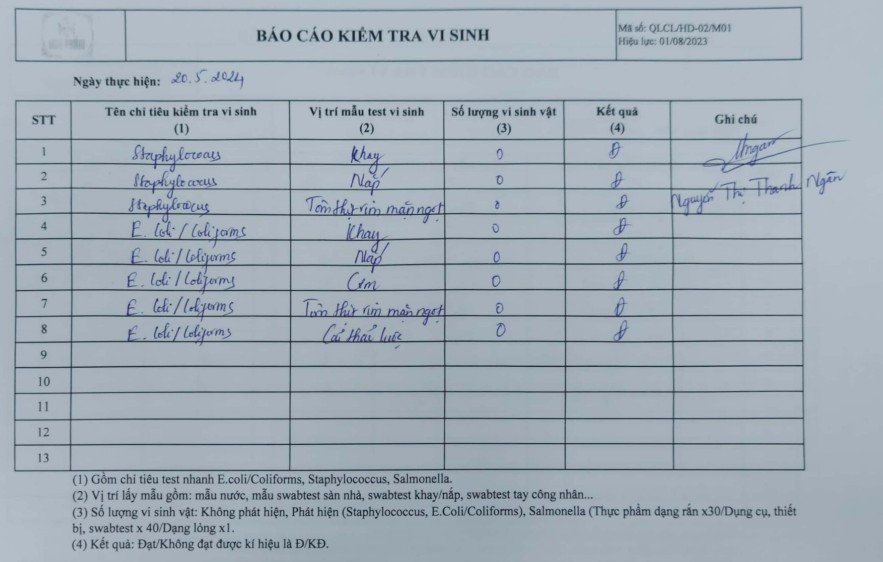 BÁO CÁO KIỂM TRA VI SINH
Mã số: QLCL/HD-02/M01
Hiệu lực: 01/08/2023
Ngày thực hiện: 20.5.2024
STT Tên chỉ tiêu kiểm tra vi sinh (1) Vị trí mẫu test vi sinh (2) Số lượng vi sinh vật (3) Kết quả (4) Ghi chú
1 Khay 0 Đ
2 Nắp 0 Đ
Nguyễn Thị Thanh Ngân
3 Tôm thịt rim mặn ngọt 0 Đ
4 E. Coli / Coliforms Khay 0 Đ
5 E. Coli / Coliforms Nắp 0 Đ
6 E. Coli / Coliforms Cơm 0 Đ
7 E. Coli / Coliforms Tôm thịt rim mặn ngọt 0 Đ
8 E. Coli / Coliforms Cải thái luộc 0 Đ
9
10
11
12
13
(1) Gồm chỉ tiêu test nhanh E.coli/Coliforms, Staphylococcus, Salmonella.
(2) Vị trí lấy mẫu gồm: mẫu nước, mẫu swabtest sàn nhà, swabtest khay/nắp, swabtest tay công nhân...
(3) Số lượng vi sinh vật: Không phát hiện, Phát hiện (Staphylococcus, E.Coli/Coliforms), Salmonella (Thực phẩm dạng rắn x30/Dụng cụ, thiết
bị, swabtest x 40/Dạng lỏng x1.
(4) Kết quả: Đạt/Không đạt được kí hiệu là Đ/KĐ.